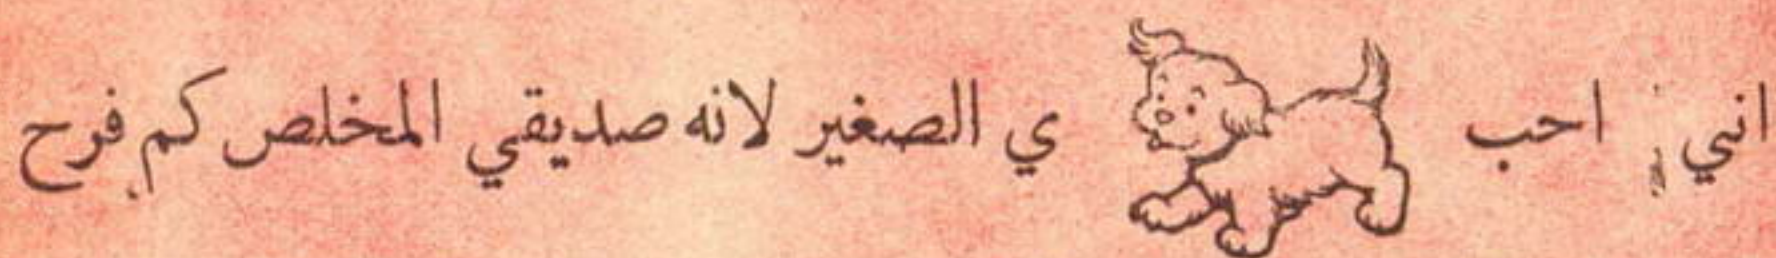 اني احب ي الصغير لانه صديقي المخلص كم فرح